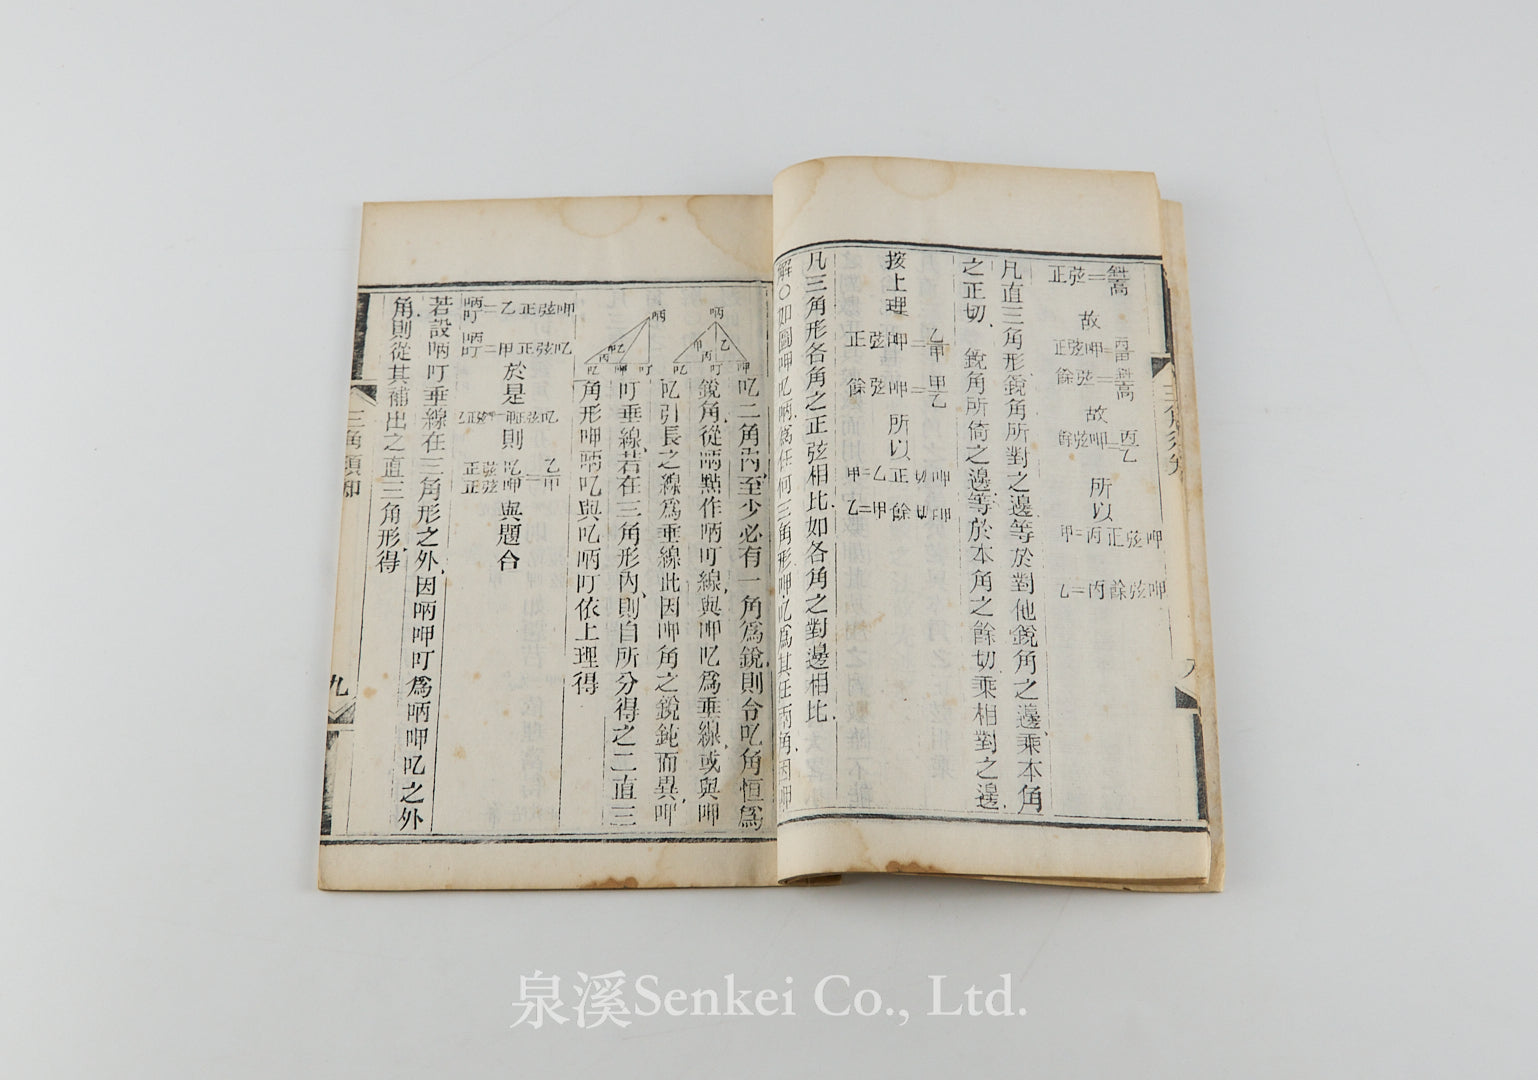 正弦=
斜
高
故
正弦呷=
丙
甲
餘弦=
斜
高
故
餘弦呷=
丙
乙
所以
甲=丙正弦呷
乙=丙餘弦呷
凡直三角形銳角所對之邊等於對他銳角之邊乘本角
之正切、銳角所倚之邊等於本角之餘切乘相對之邊
按上理
正弦呷=
乙
甲
餘弦呷=
甲
乙
所以
甲=乙正切呷
乙=甲餘切呷
凡三角形各角之正弦相比如各角之對邊相比
解○如圖呷叱唡爲任何三角形呷叱爲其任兩角因呷
叱二角內至少必有一角爲銳則令叱角恒爲
銳角從唡點作唡叮線與呷叱爲垂線或與呷
叱引長之線爲垂線此因呷角之銳鈍而異
叮垂線若在三角形內則自所分得之二直三
角形呷唡叱與叱唡叮依上理得
唡叮=乙正弦呷
唡叮=甲正弦叱
於是
則
正弦叱
正弦呷
=
乙
甲
與題合
若設唡叮垂線在三角形之外因唡呷叮爲唡呷叱之外
角則從其補出之直三角形得
三角須知
九
泉溪Senkei Co., Ltd.